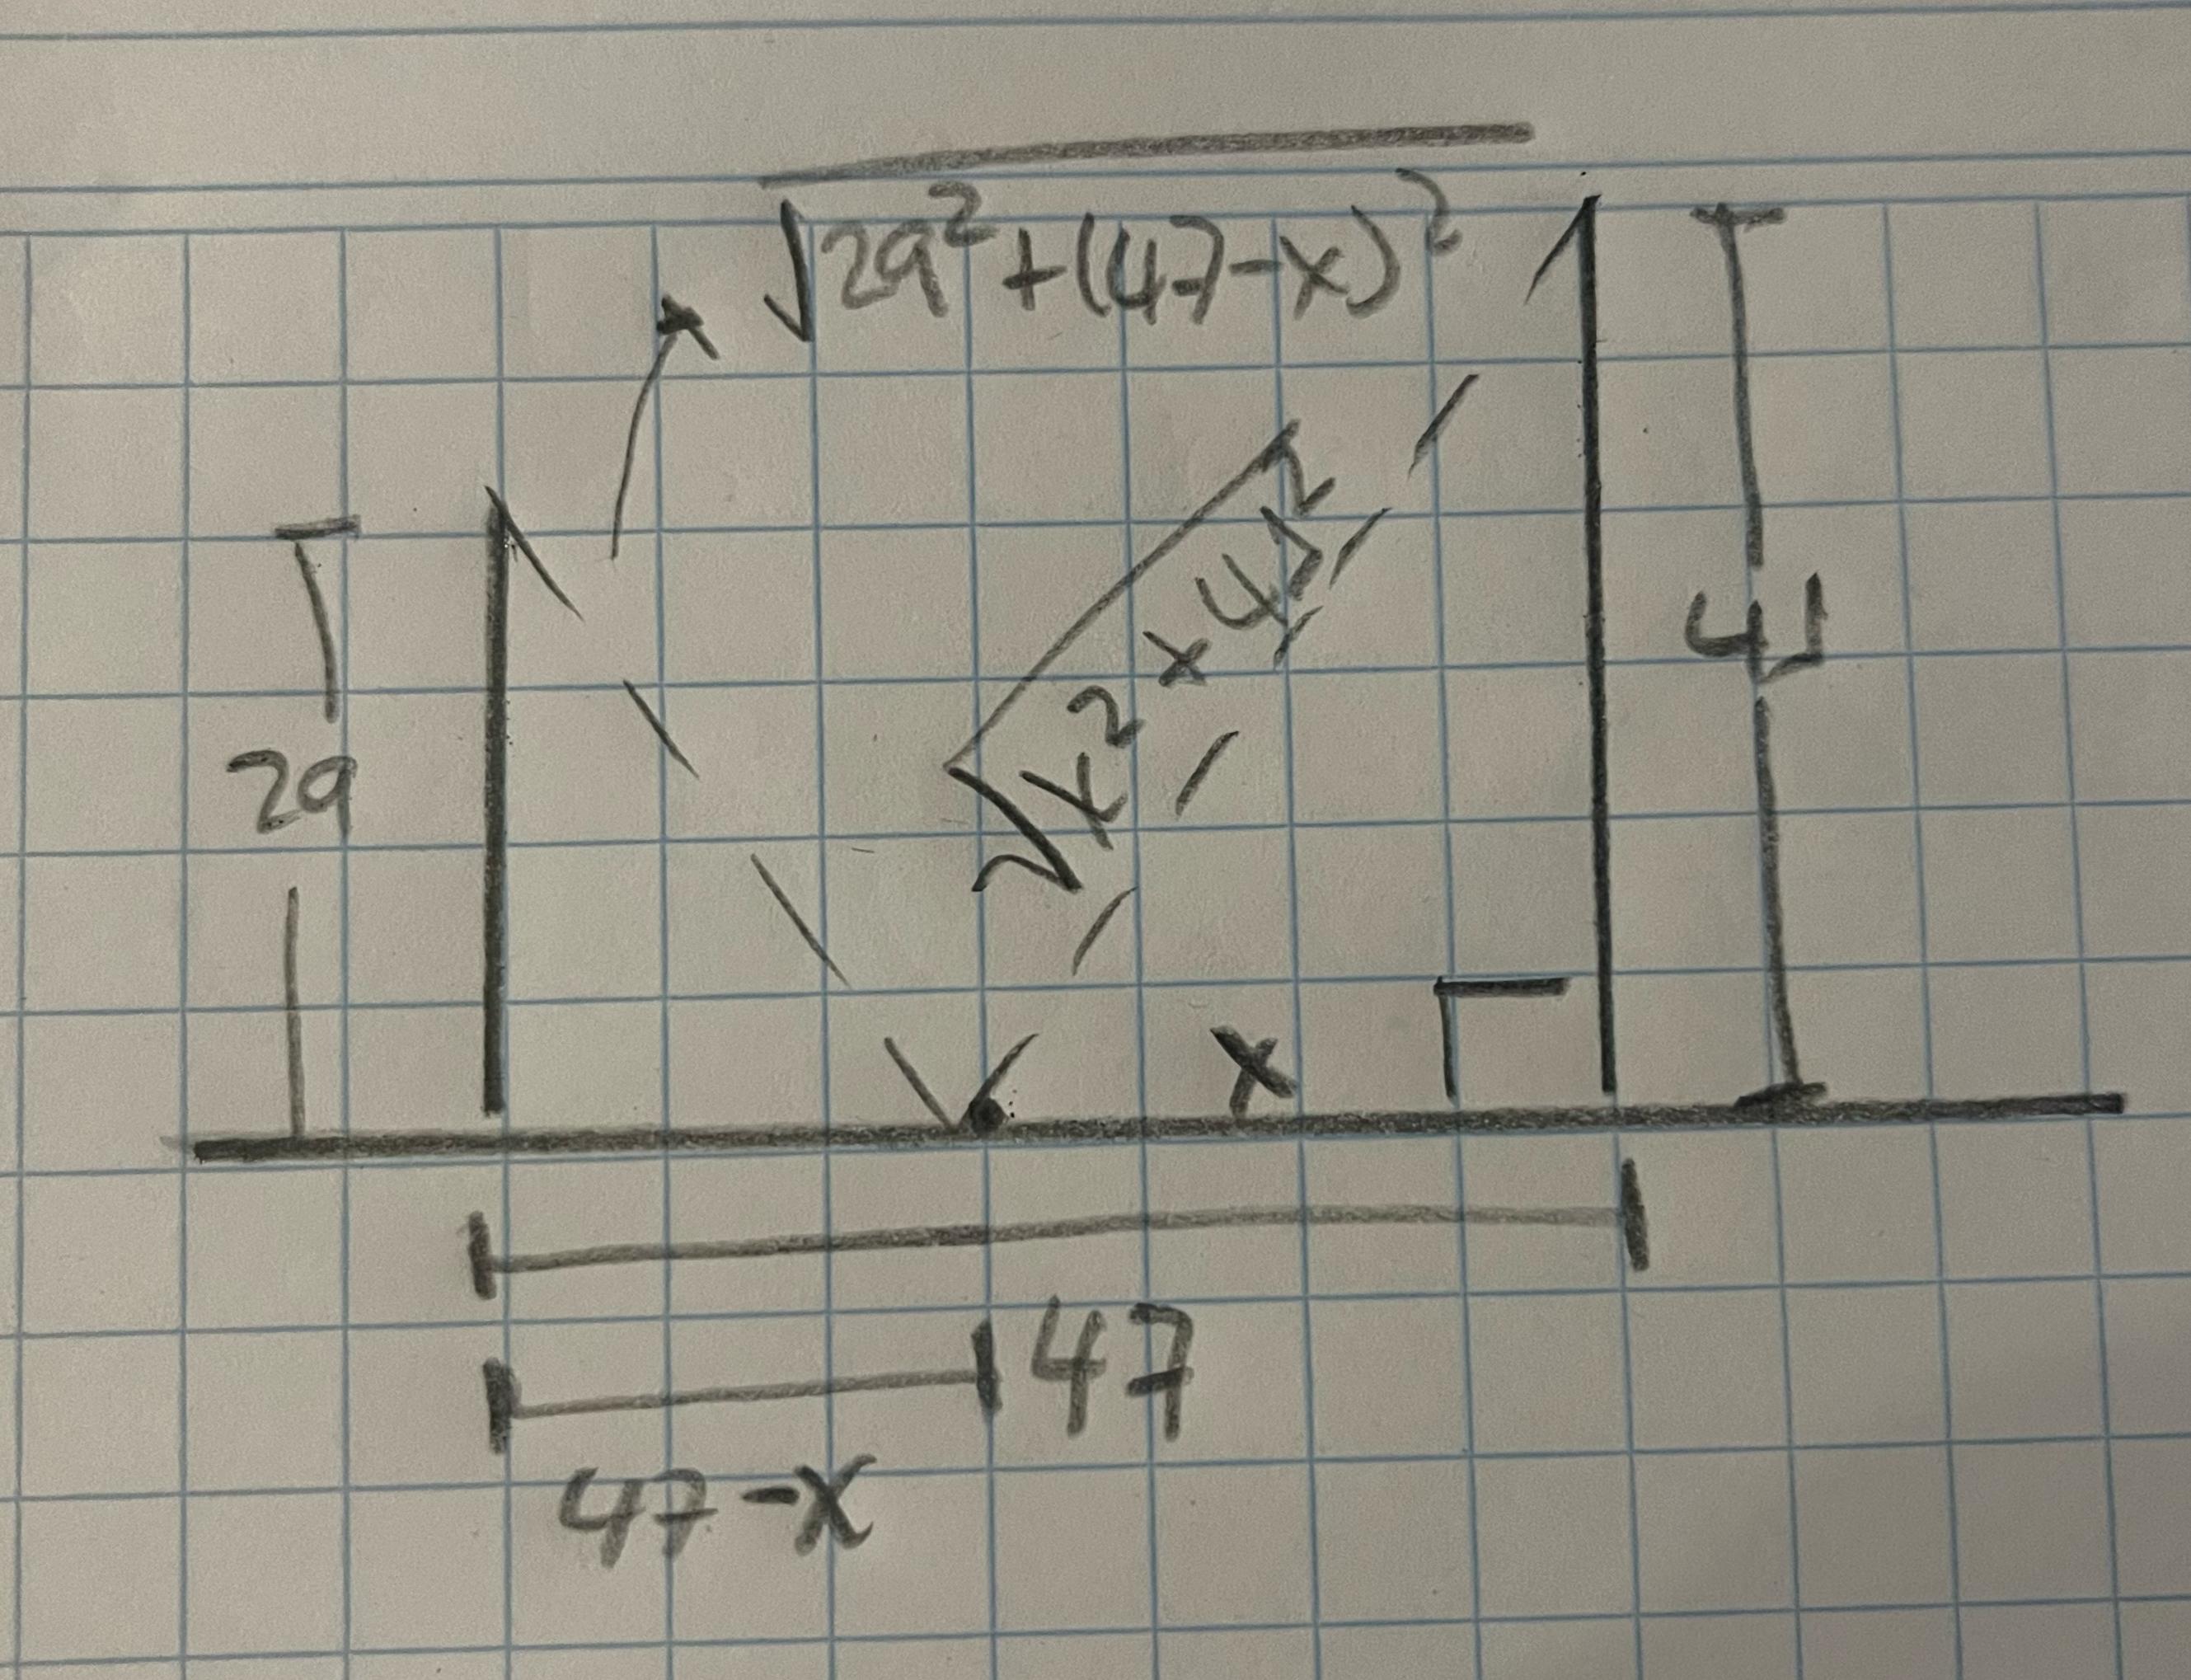 √29²+(47-x)²
√x²+41²
41
29
x
47
47-x